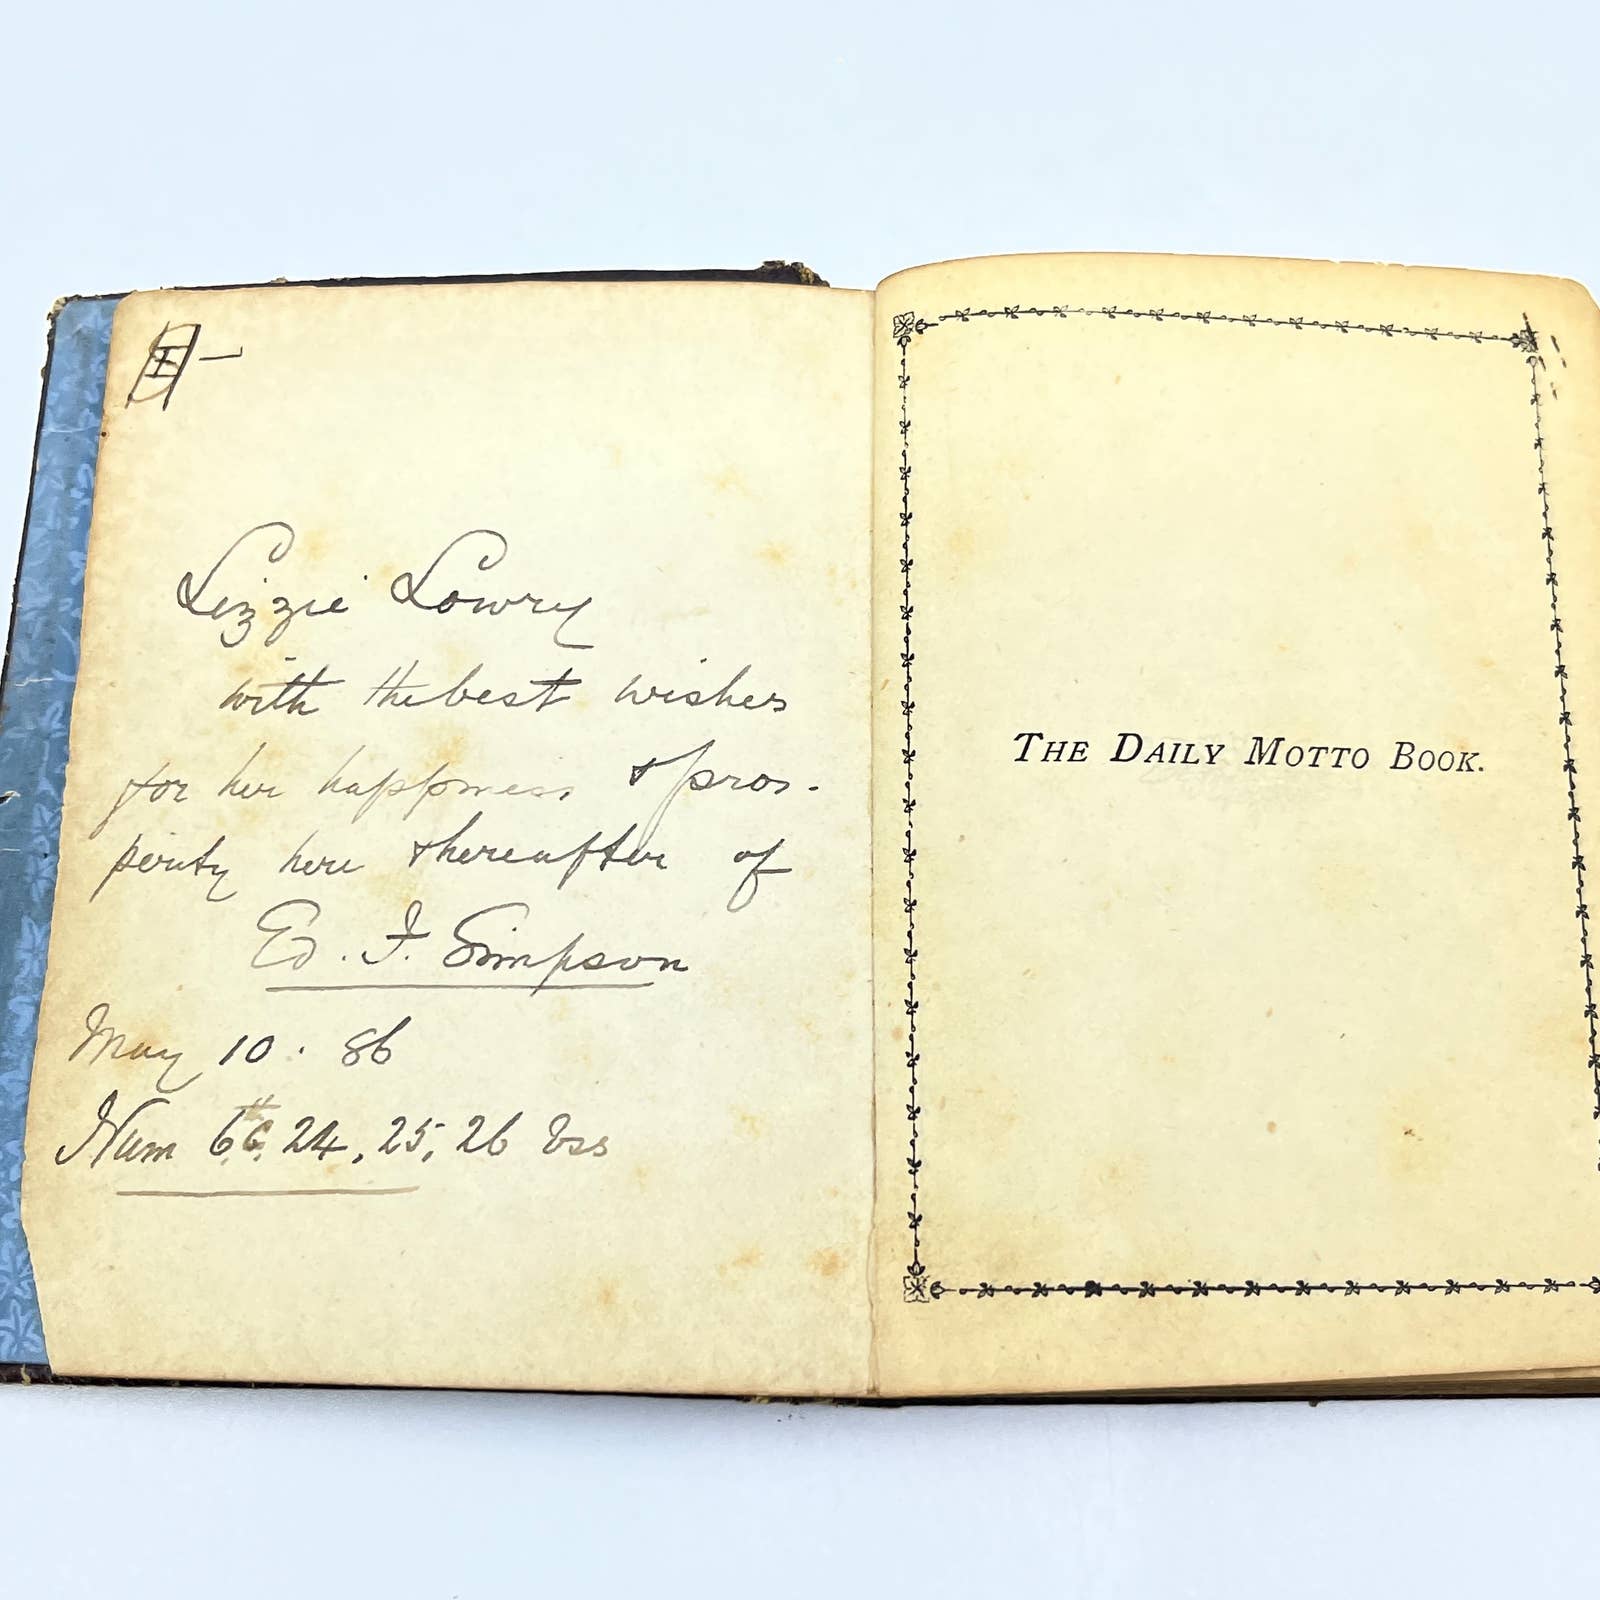 Lizzie Lowry
with the best wishes
for her happiness & pros-
perity here & hereafter of
Ed. F. Simpson
May 10. 86
Num 6th C. 24, 25, 26 vss
THE DAILY MOTTO BOOK.